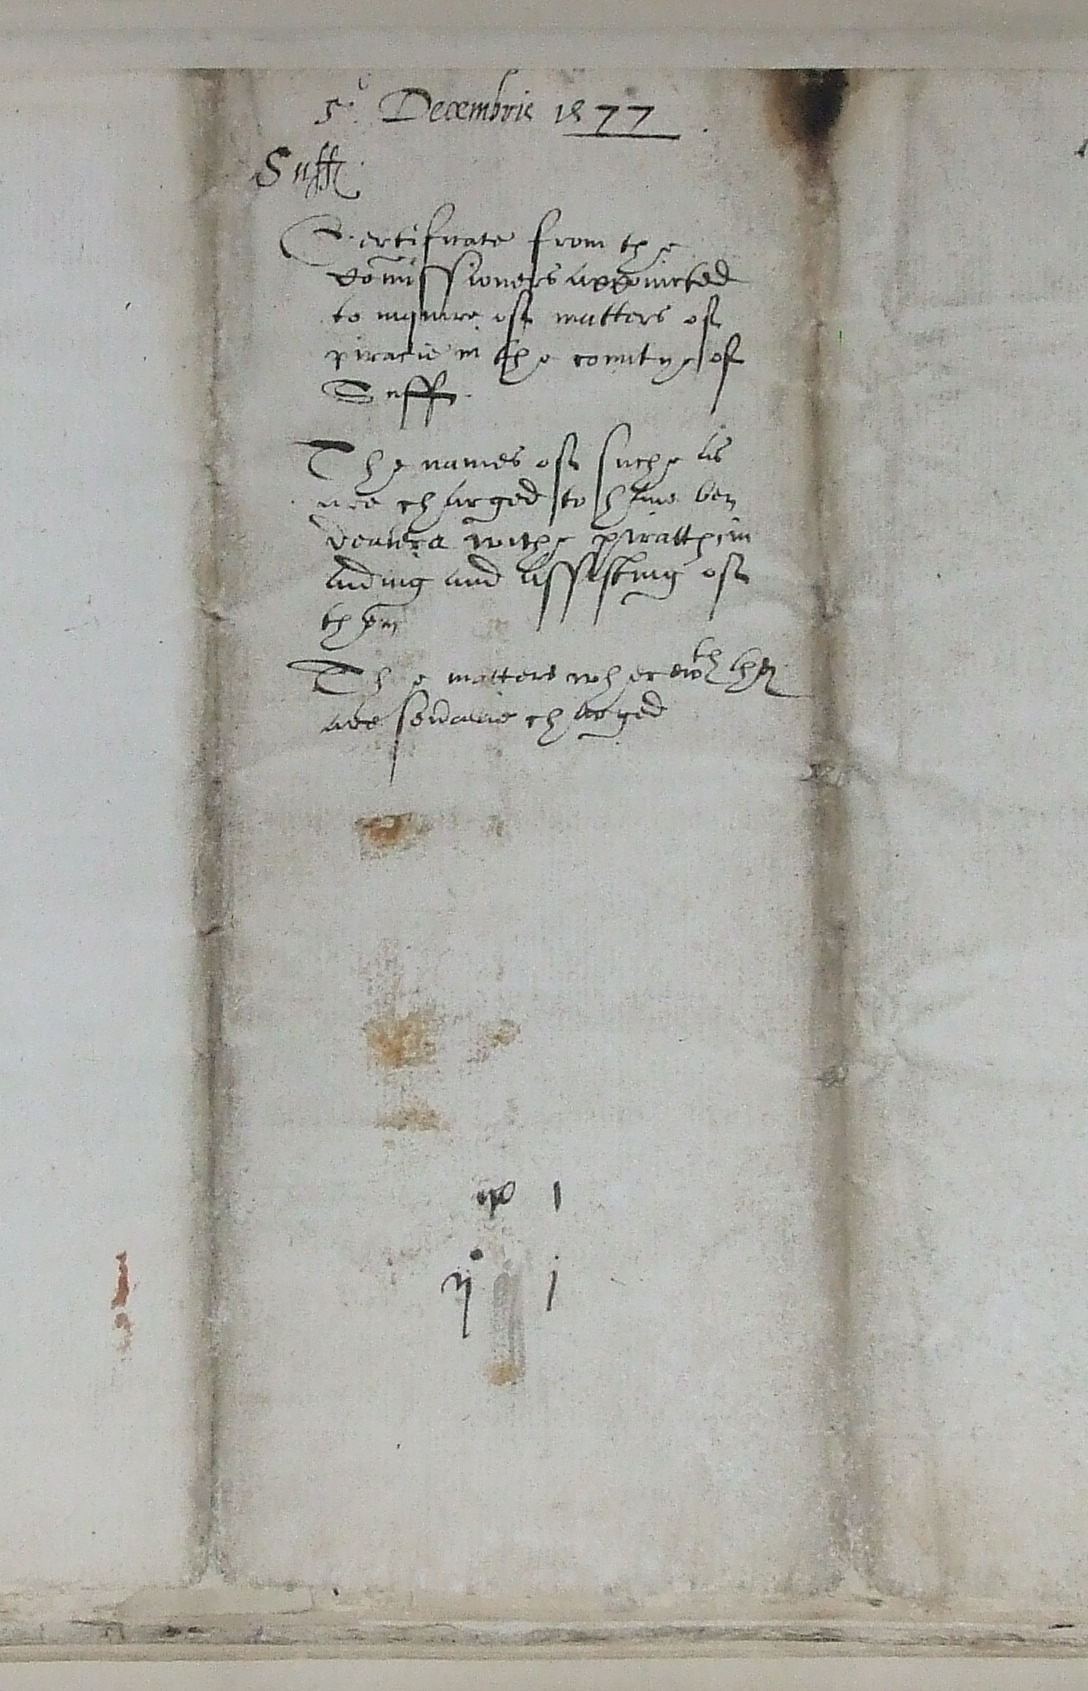 5°. Decembris 1577.
Suff.
Certificate from the
Comissioners appointed
to inquire of matters of
piracie in the countye of
Suff.
The names of suche as
are charged to have ben
dealers withe piratts in
aiding and assisting of
them
The matters wherewth they
are severallie charged
1
ij j